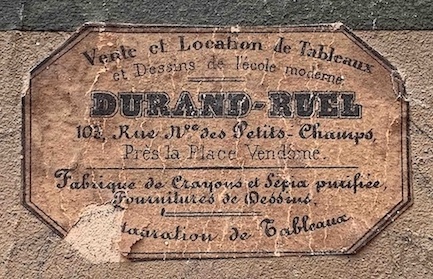 Vente et Location de Tableaux
et Dessins de l'école moderne
DURAND-RUEL
103, Rue Nve des Petits-Champs,
Près la Place Vendôme.
Fabrique de Crayons et Sépia purifiée,
Fournitures de Dessins,
de Tableaux